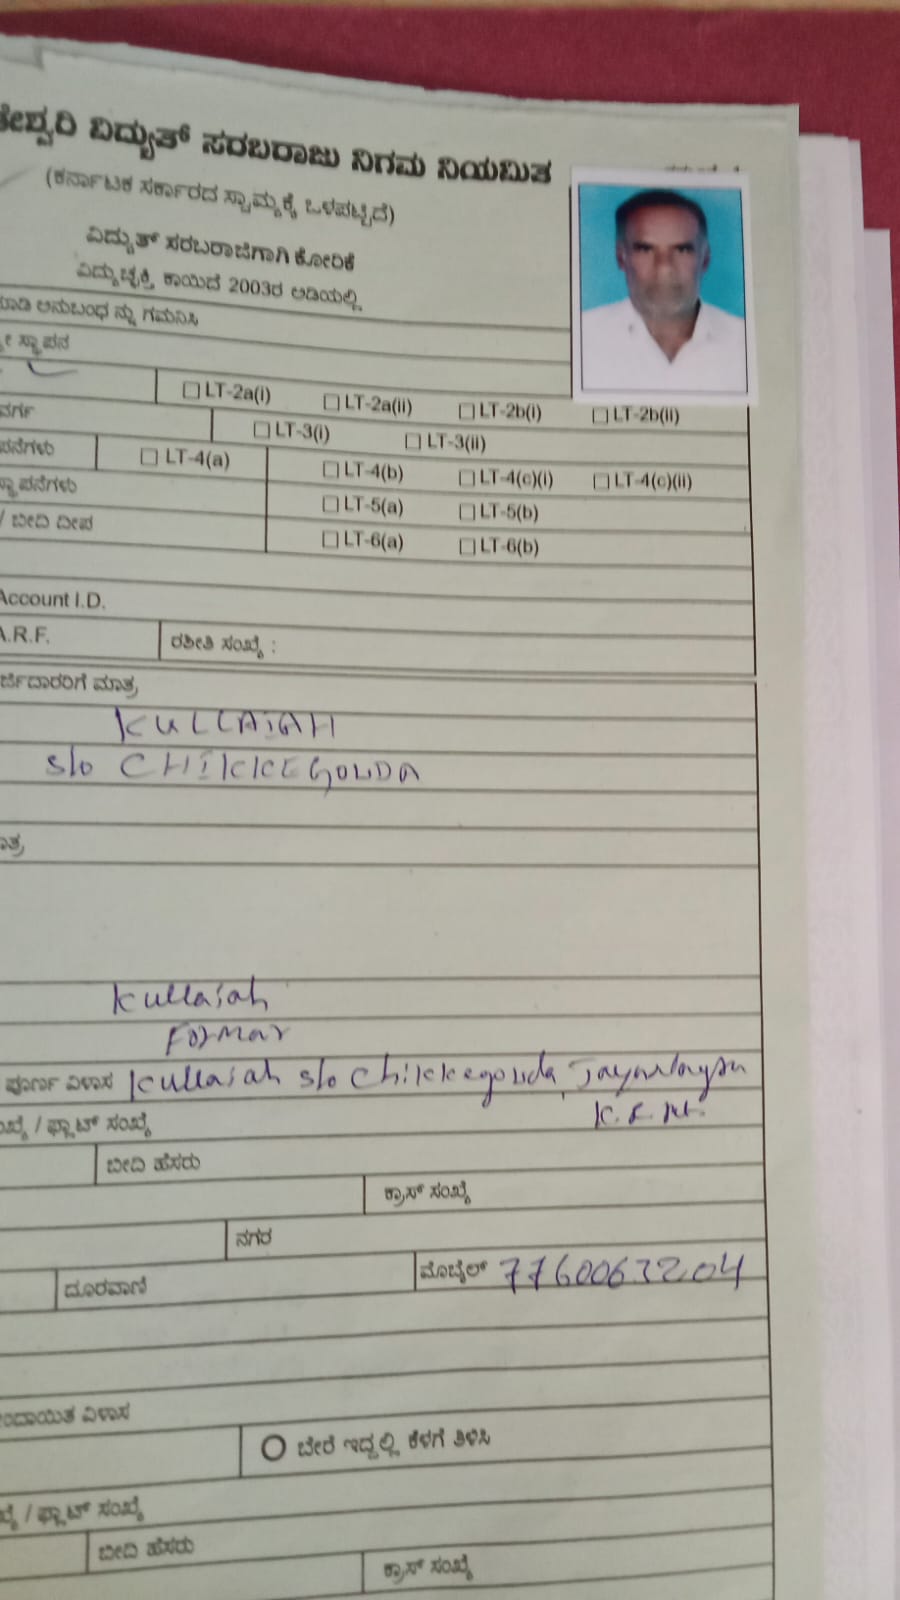 ವಿದ್ಯುತ್ ಸರಬರಾಜು ನಿಗಮ ನಿಯಮಿತ
(ಕರ್ನಾಟಕ ಸರ್ಕಾರದ ಸ್ವಾಮ್ಯಕ್ಕೆ ಒಳಪಟ್ಟಿದೆ)
ವಿದ್ಯುತ್ ಸರಬರಾಜಿಗಾಗಿ ಕೋರಿಕೆ
ವಿದ್ಯುಚ್ಛಕ್ತಿ ಕಾಯಿದೆ 2003ರ ಅಡಿಯಲ್ಲಿ
ಅನುಬಂಧ ನ್ನು ಗಮನಿಸಿ
ಸ್ಥಾಪನ
☐ LT-2a(i) ☐ LT-2a(ii) ☐ LT-2b(i) ☐ LT-2b(ii)
ವರ್ಗ ☐ LT-3(i) ☐ LT-3(ii)
☐ LT-4(a) ☐ LT-4(b) ☐ LT-4(c)(i) ☐ LT-4(c)(ii)
☐ LT-5(a) ☐ LT-5(b)
/ ಬೀದಿ ದೀಪ ☐ LT-6(a) ☐ LT-6(b)
Account I.D.
A.R.F. ರಶೀತಿ ಸಂಖ್ಯೆ :
ಮಾತ್ರ
KULLAIAH
S/o CHIKKEGOUDA
Kullaiah
Formar
ಪೂರ್ಣ ವಿಳಾಸ Kullaiah S/o Chikkegouda,
/ ಫ್ಲಾಟ್ ಸಂಖ್ಯೆ
ಬೀದಿ ಹೆಸರು
ಕ್ರಾಸ್ ಸಂಖ್ಯೆ
ನಗರ
ದೂರವಾಣಿ ಮೊಬೈಲ್ 7760063204
ವಿಳಾಸ
ಬೇರೆ ಇದ್ದಲ್ಲಿ ಕೆಳಗೆ ತಿಳಿಸಿ
/ ಫ್ಲಾಟ್ ಸಂಖ್ಯೆ
ಬೀದಿ ಹೆಸರು
ಕ್ರಾಸ್ ಸಂಖ್ಯೆ